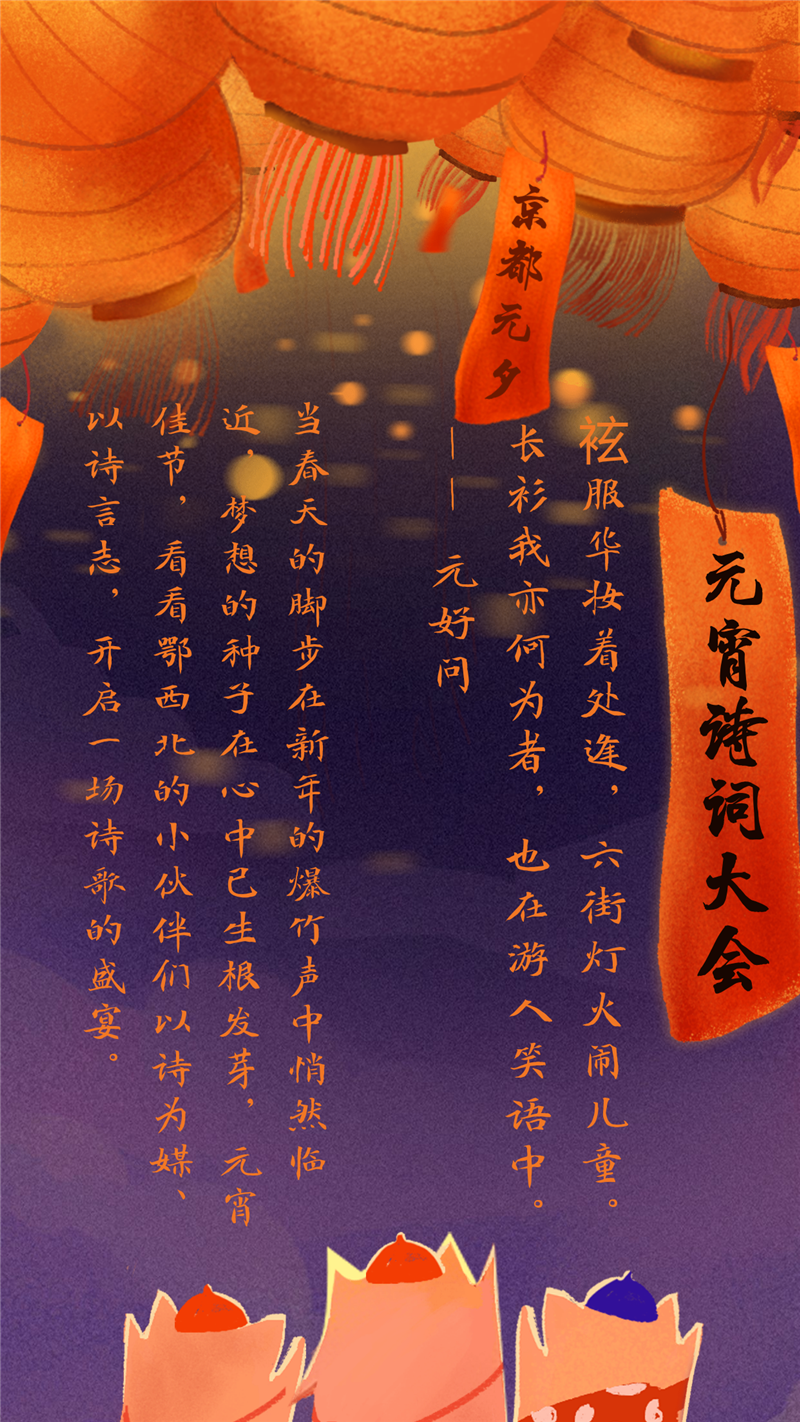 元宵诗词大会
京都元夕
袨服华妆着处逢，六街灯火闹儿童。
长衫我亦何为者，也在游人笑语中。
——元好问
当春天的脚步在新年的爆竹声中悄然临
近，梦想的种子在心中已生根发芽，元宵
佳节，看看鄂西北的小伙伴们以诗为媒、
以诗言志，开启一场诗歌的盛宴。